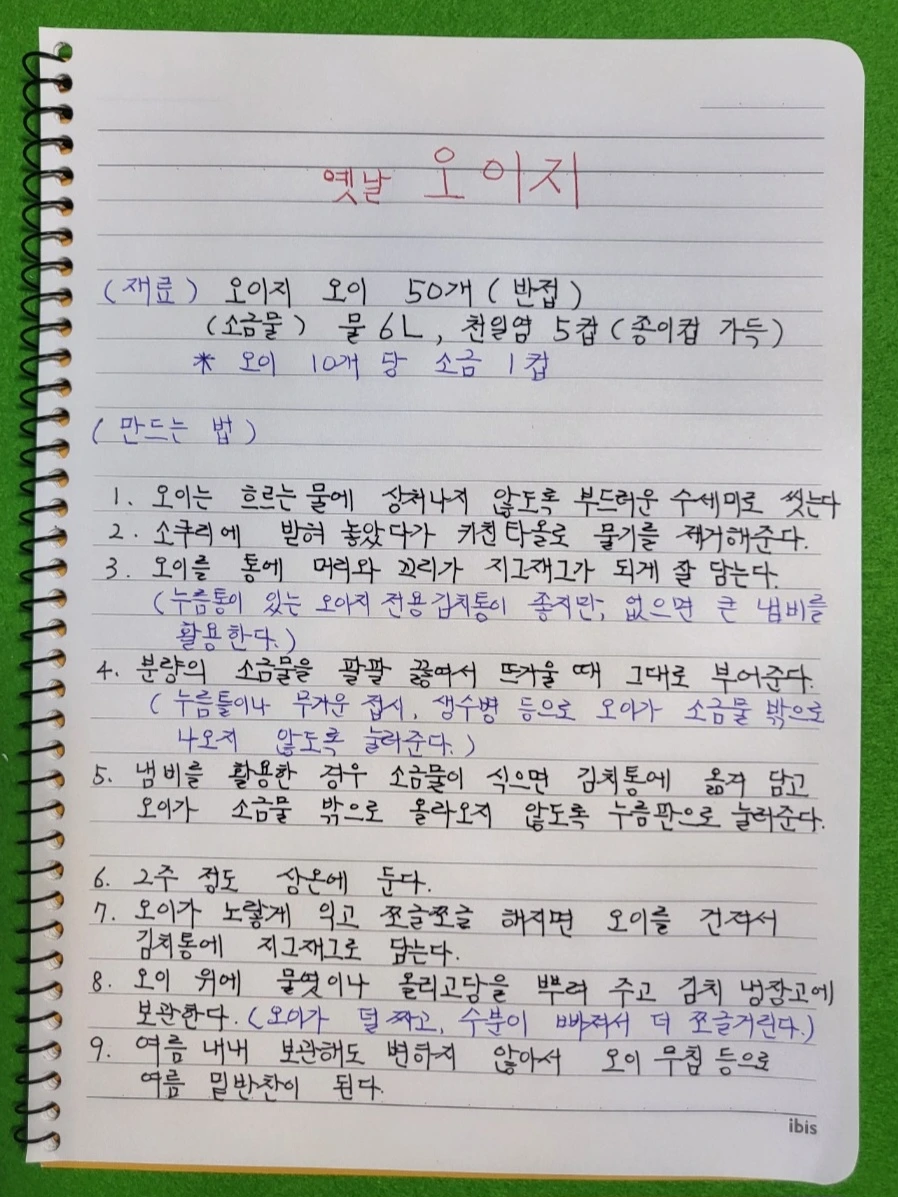 옛날 오이지
(재료) 오이지 오이 50개 (반접)
(소금물) 물 6L, 천일염 5컵 (종이컵 가득)
* 오이 10개 당 소금 1컵
(만드는 법)
1. 오이는 흐르는 물에 상처나지 않도록 부드러운 수세미로 씻는다
2. 소쿠리에 받혀 놓았다가 키친타올로 물기를 제거해준다.
3. 오이를 통에 머리와 꼬리가 지그재그가 되게 잘 담는다.
(누름통이 있는 오이지 전용김치통이 좋지만, 없으면 큰 냄비를
활용한다.)
4. 분량의 소금물을 팔팔 끓여서 뜨거울 때 그대로 부어준다.
(누름틀이나 무거운 접시, 생수병 등으로 오이가 소금물 밖으로
나오지 않도록 눌러준다.)
5. 냄비를 활용한 경우 소금물이 식으면 김치통에 옮겨 담고
오이가 소금물 밖으로 올라오지 않도록 누름판으로 눌러준다.
6. 2주 정도 상온에 둔다.
7. 오이가 노랗게 익고 쪼글쪼글 해지면 오이를 건져서
김치통에 지그재그로 담는다.
8. 오이 위에 물엿이나 올리고당을 뿌려 주고 김치 냉장고에
보관한다. (오이가 덜 짜고, 수분이 빠져서 더 쪼글거린다.)
9. 여름 내내 보관해도 변하지 않아서 오이 무침 등으로
여름 밑반찬이 된다.
ibis